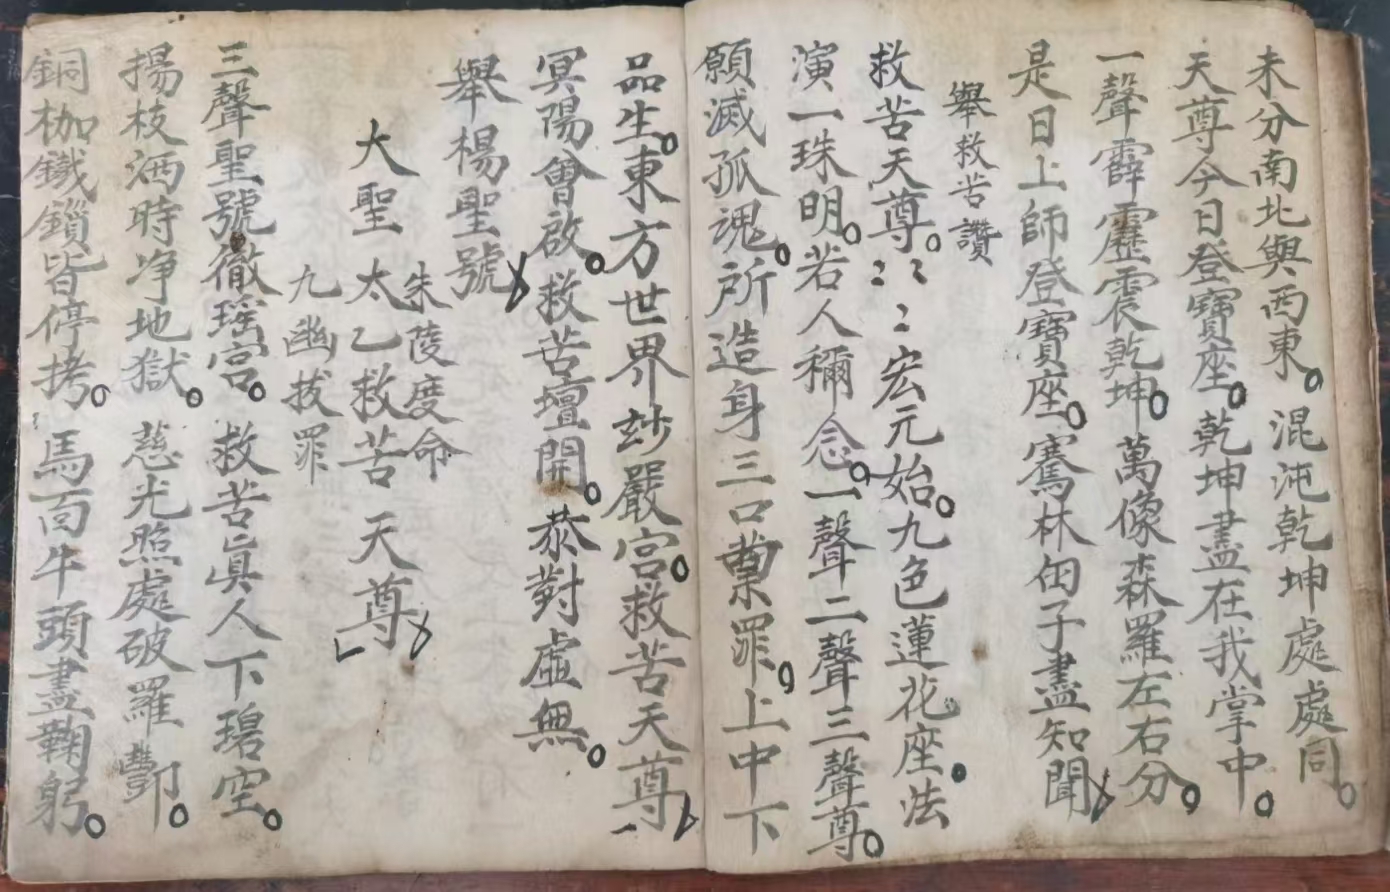 未分南北與西東。混沌乾坤處處同。
天尊今日登寶座。乾坤盡在我掌中。
一聲霹靂震乾坤。萬像森羅左右分。
是日上師登寶座。騫林田子盡知聞
舉救苦讚
救苦天尊。〻〻〻宏元始。九色蓮花座。法
演一珠明。若人稱念。一聲二聲三聲尊。
願滅孤魂。所造身三口業罪。上中下
品生。東方世界妙嚴宮。救苦天尊
冥陽會啟。救苦壇開。恭對虛無。
舉楊聖號
朱陵度命
大聖太乙救苦天尊
九幽拔罪
三聲聖號徹瑤宮。救苦眞人下碧空。
揚枝洒時净地獄。慈光照處破羅酆。
銅枷鐵鎖皆停拷。馬面牛頭盡鞠躬。